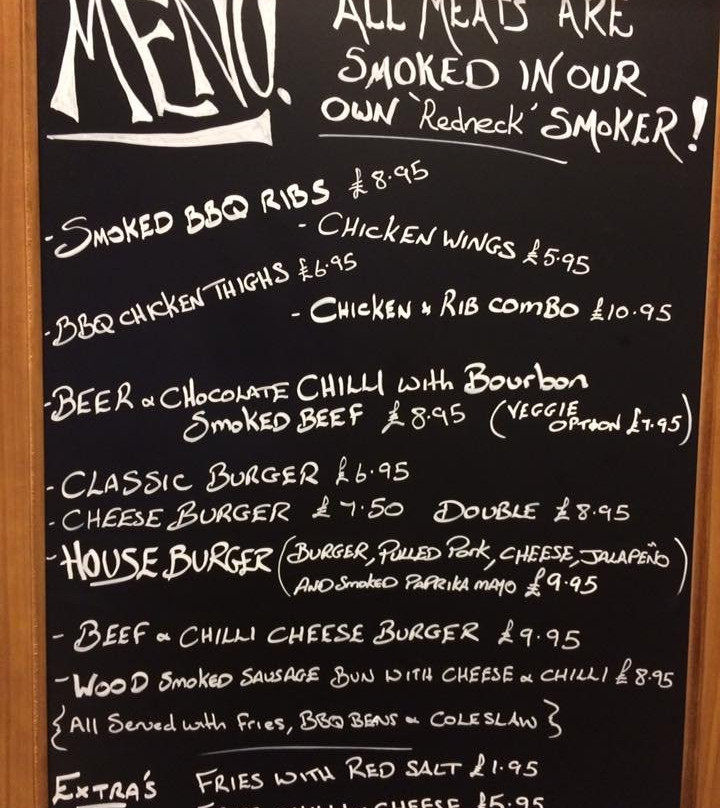 MENU.
ALL MEATS ARE
SMOKED IN OUR
OWN 'Redneck' SMOKER!
- SMOKED BBQ RIBS £8.95
- CHICKEN WINGS £5.95
- BBQ CHICKEN THIGHS £6.95
- CHICKEN & RIB COMBO £10.95
- BEER & CHOCOLATE CHILLI with Bourbon
SMOKED BEEF £8.95 (VEGGIE OPTION £7.95)
- CLASSIC BURGER £6.95
- CHEESE BURGER £7.50 DOUBLE £8.95
- HOUSE BURGER (BURGER, PULLED Pork, CHEESE, JALAPEÑO
AND SMOKED PAPRIKA MAYO £9.95)
- BEEF & CHILLI CHEESE BURGER £9.95
- WOOD SMOKED SAUSAGE BUN WITH CHEESE & CHILLI £8.95
{All Served with Fries, BBQ BEANS & COLESLAW}
EXTRA'S FRIES WITH RED SALT £1.95
CHEESE £5.95